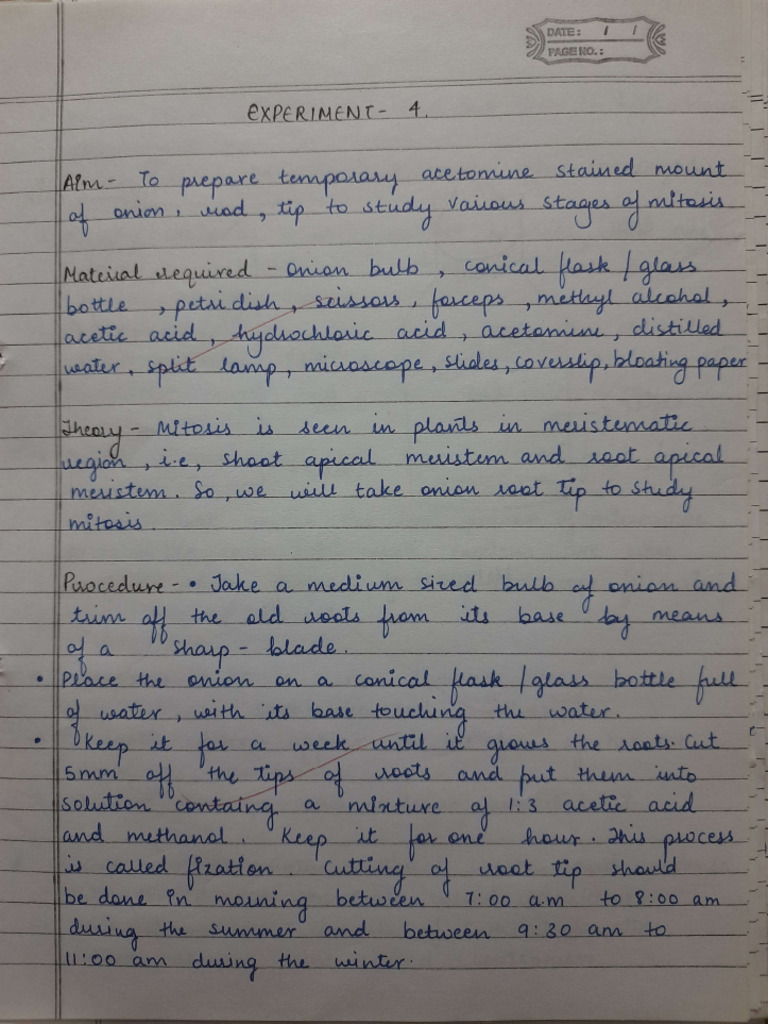 DATE: / /
PAGE NO.:
EXPERIMENT- 4.
Aim- To prepare temporary acetomine stained mount
of onion, rood, tip to study various stages of mitosis
Material required - Onion bulb, conical flask / glass
bottle, petridish, scissors, forceps, methyl alcohol,
acetic acid, hydrochloric acid, acetomine, distilled
water, split lamp, microscope, slides, coverslip, bloating paper
Theory- Mitosis is seen in plants in meristematic
region, i.e, shoot apical meristem and root apical
meristem. So, we will take onion root tip to study
mitosis.
Procedure- • Take a medium sized bulb of onion and
trim off the old roots from its base by means
of a sharp-blade.
• Place the onion on a conical flask / glass bottle full
of water, with its base touching the water.
• Keep it for a week until it grows the roots. Cut
5mm off the tips of roots and put them into
solution containg a mixture of 1:3 acetic acid
and methanol. Keep it for one hour. This process
is called fixation. Cutting of root tip should
be done in morning between 7:00 a.m to 8:00 am
during the summer and between 9:30 am to
11:00 am during the winter.